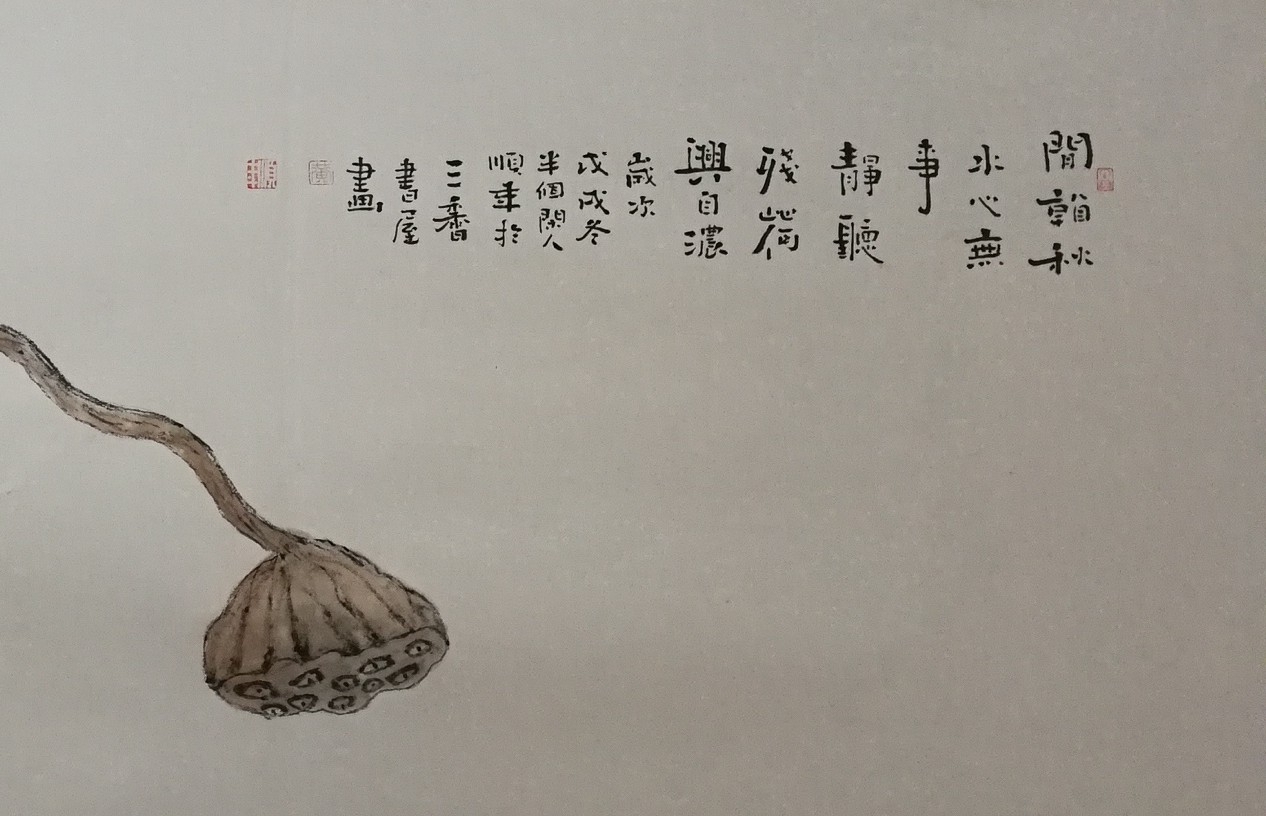 閒看秋
水心無
事
靜聽
殘荷
興自濃
歲次
戊戌冬
半個閑人
順華於
三香
書屋
畫
黃